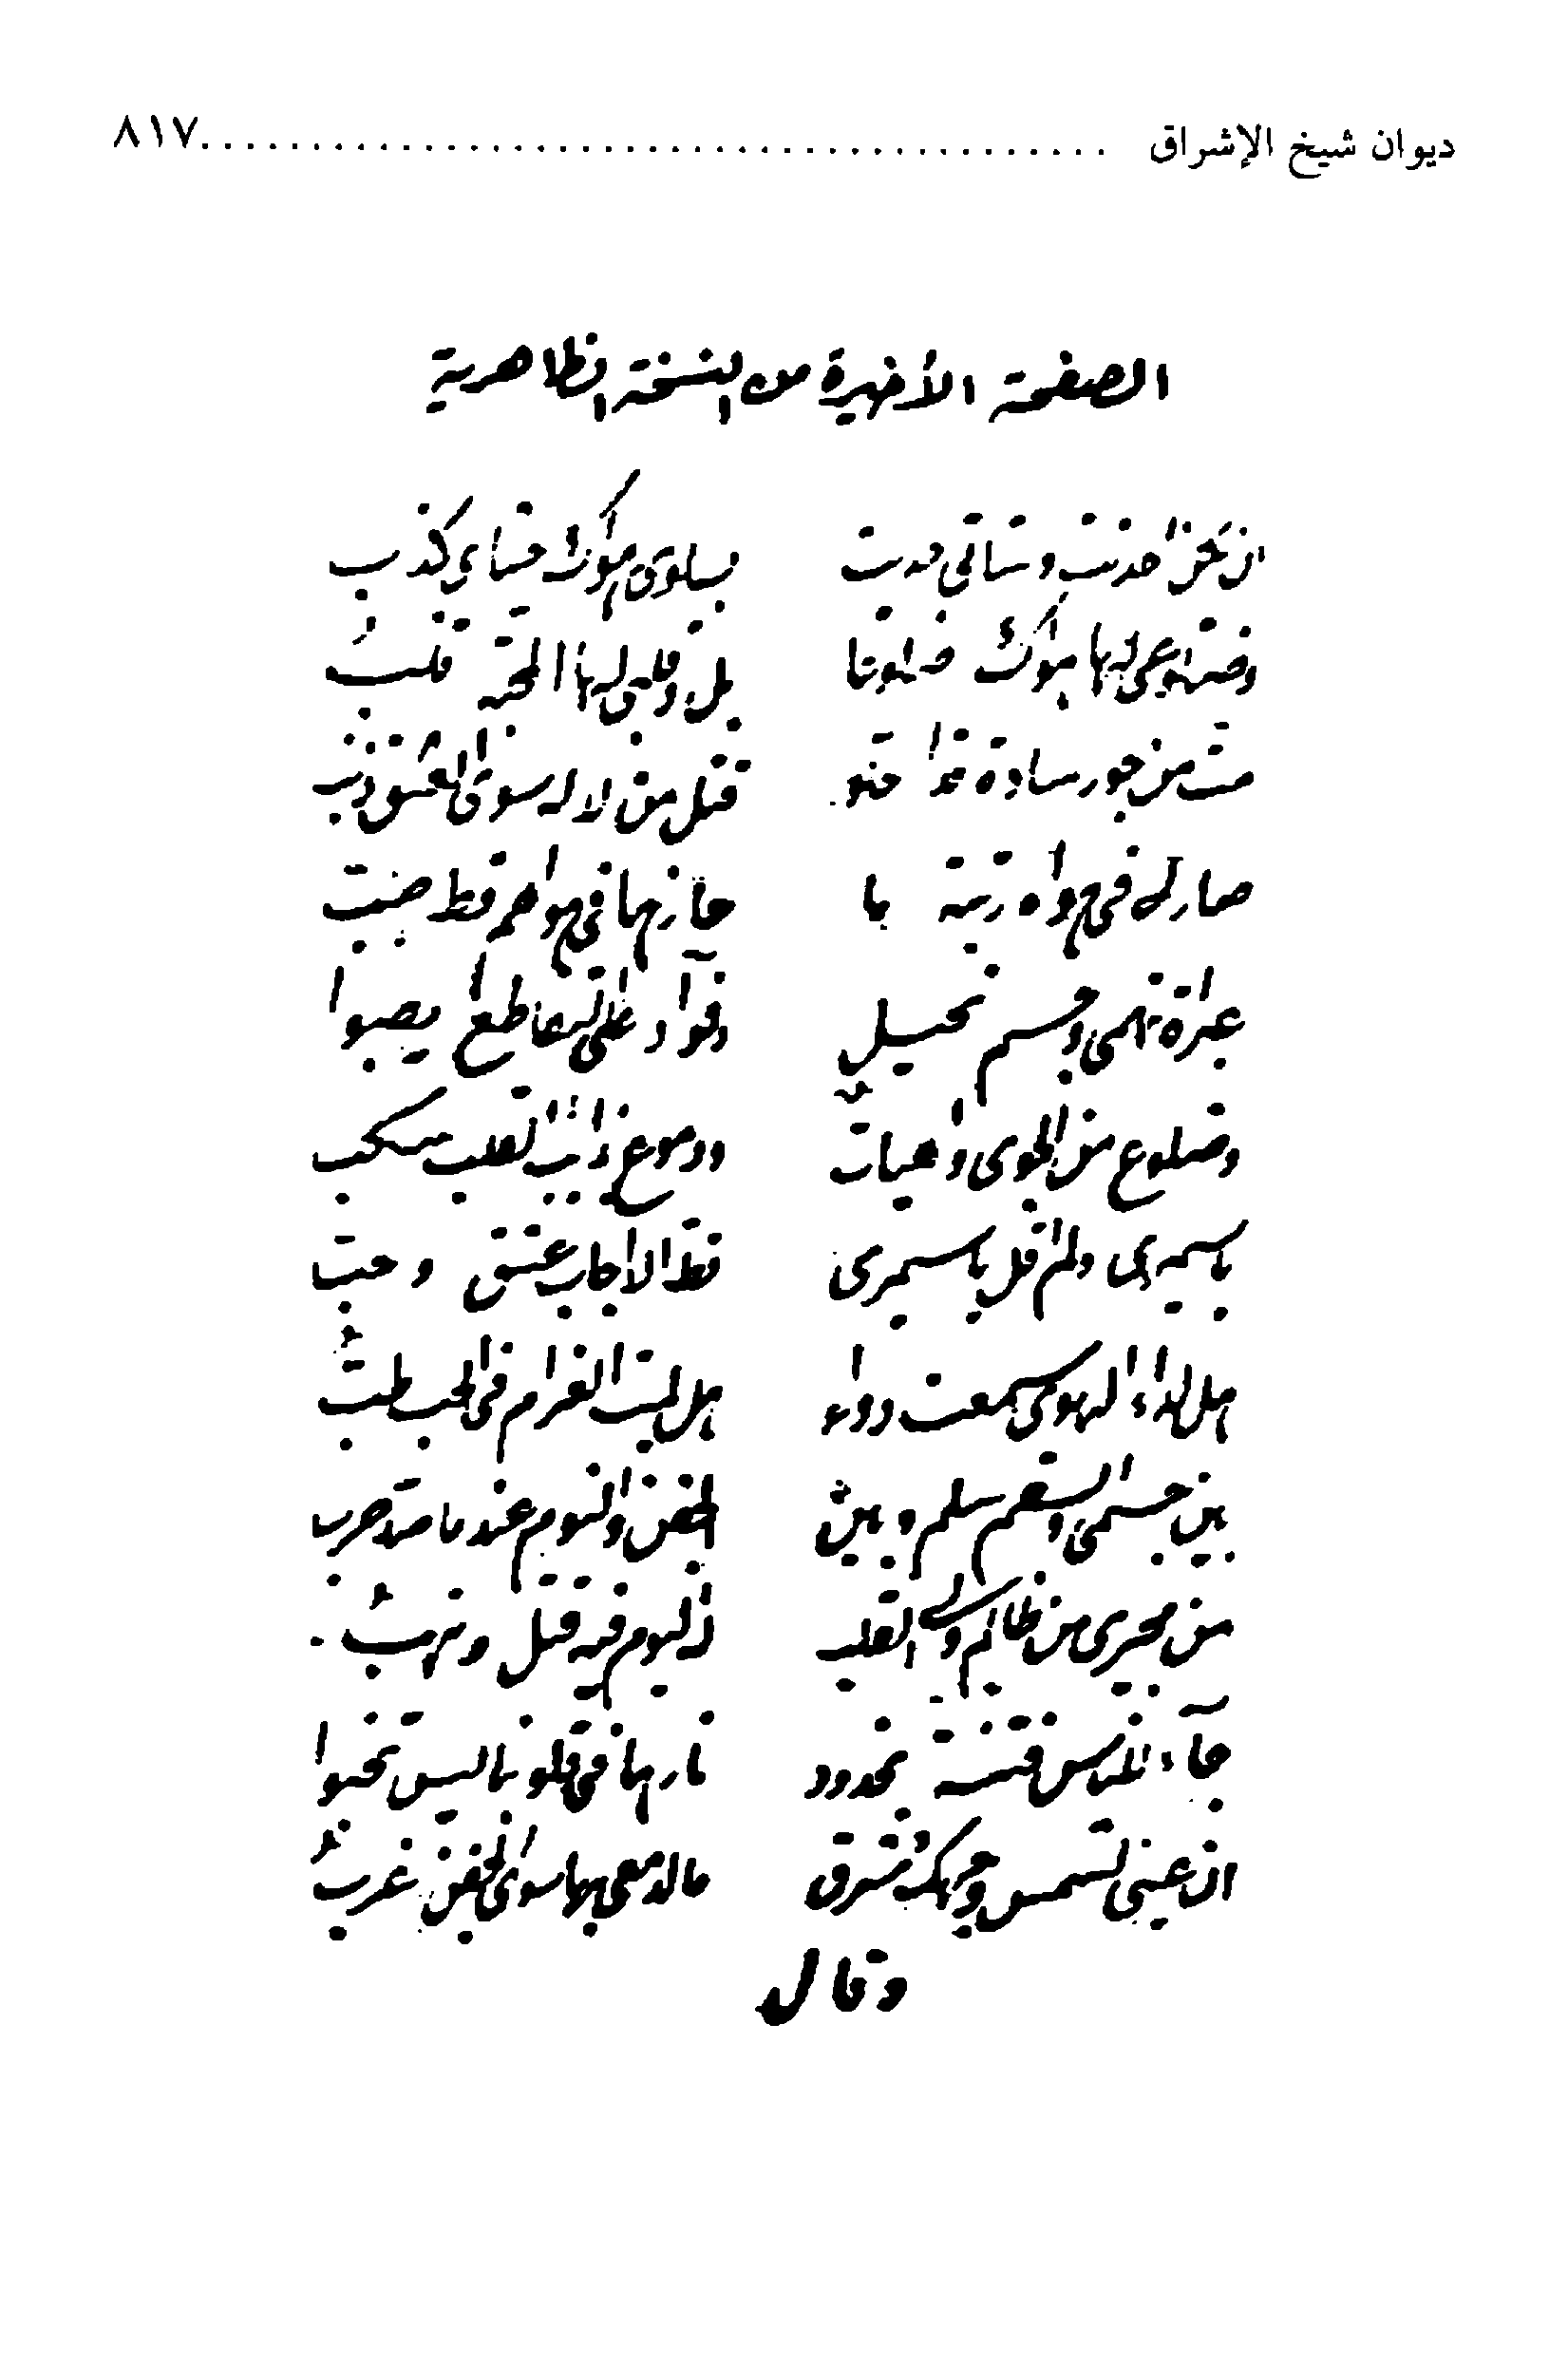 ديوان شيخ الإشراق ........................................ ٨١٧
الصفحة الأخيرة من النسخة الظاهرية
ان تكن احدثت وشاتى حديث بسلوى هواك فشاي كذب
هواك بل وقلبى لها المحبة قلب
مت من جور سادة قتل من لا له سوى العشق ذنب
صار لى فى هواه رتبة ما حازها فى هواهم قط صب
عبرة تهمى وجسم نحيل وفوآد على التقاطع يصبوا
وضلوع من الجوى واهيات ودموع ذائب القلب سكب
يا سميرى ولم اقل يا سميرى قط الا اجاب عشق وحب
هل لداء الهوى سمعت دواء هل لميت الغرام فى الحب طب
بين جسمى والسقم سلم وبين الجفن والنوم عند ما صد حرب
من مجيرى من ظالم ولى القلب له اليوم فيه قتل ونهب
جآء للناس فتنة بخدود نارها فى قلوبنا ليس تخبوا
ان عينى لشمس وجهك شرق ما لدمعى بها سوى الجفن غرب
وقال